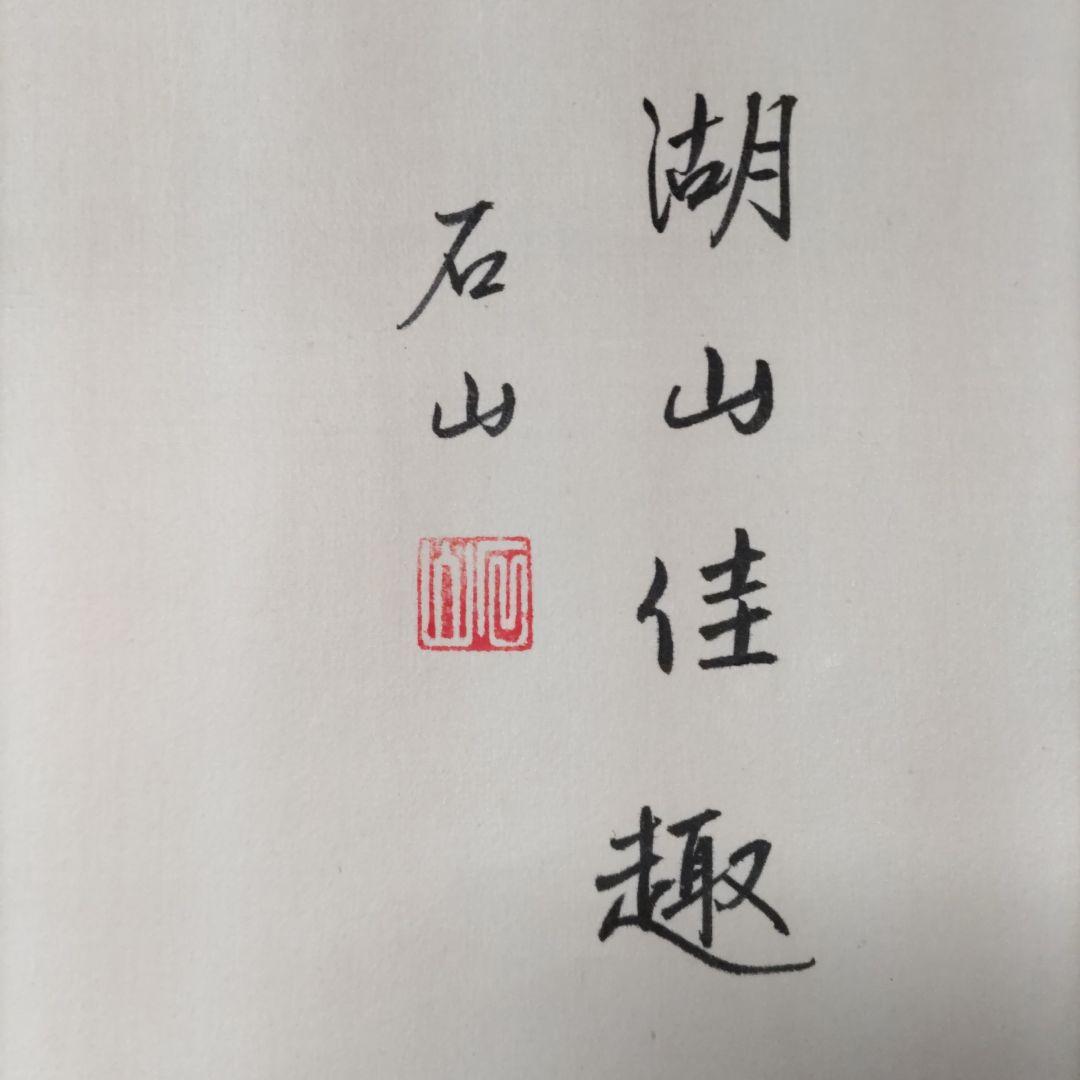 湖山佳趣
石山
石山